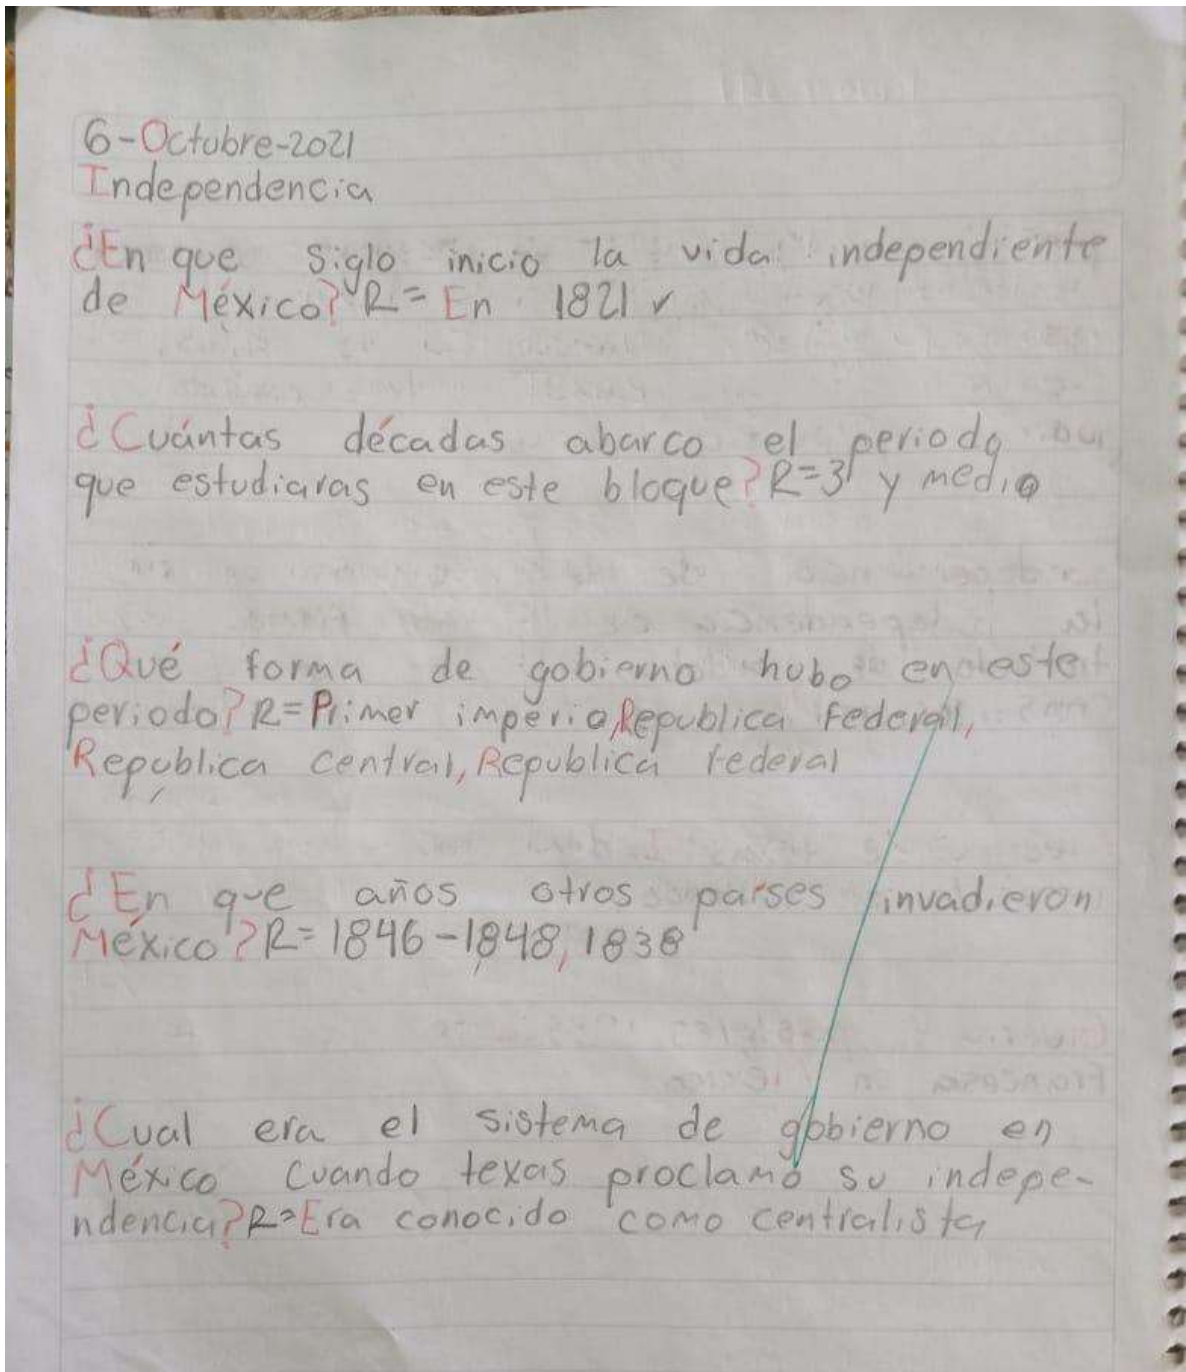 6-Octubre-2021
Independencia
¿En que siglo inicio la vida independiente
de México? R= En 1821 ✓
¿Cuántas décadas abarco el periodo
que estudiaras en este bloque? R=3 y medio
¿Qué forma de gobierno hubo en este
periodo? R= Primer imperio, Republica Federal,
Republica central, Republica federal
¿En que años otros países invadieron
México? R= 1846-1848, 1838
¿Cual era el sistema de gobierno en
México cuando texas proclamó su indepe-
ndencia? R= Era conocido como centralista